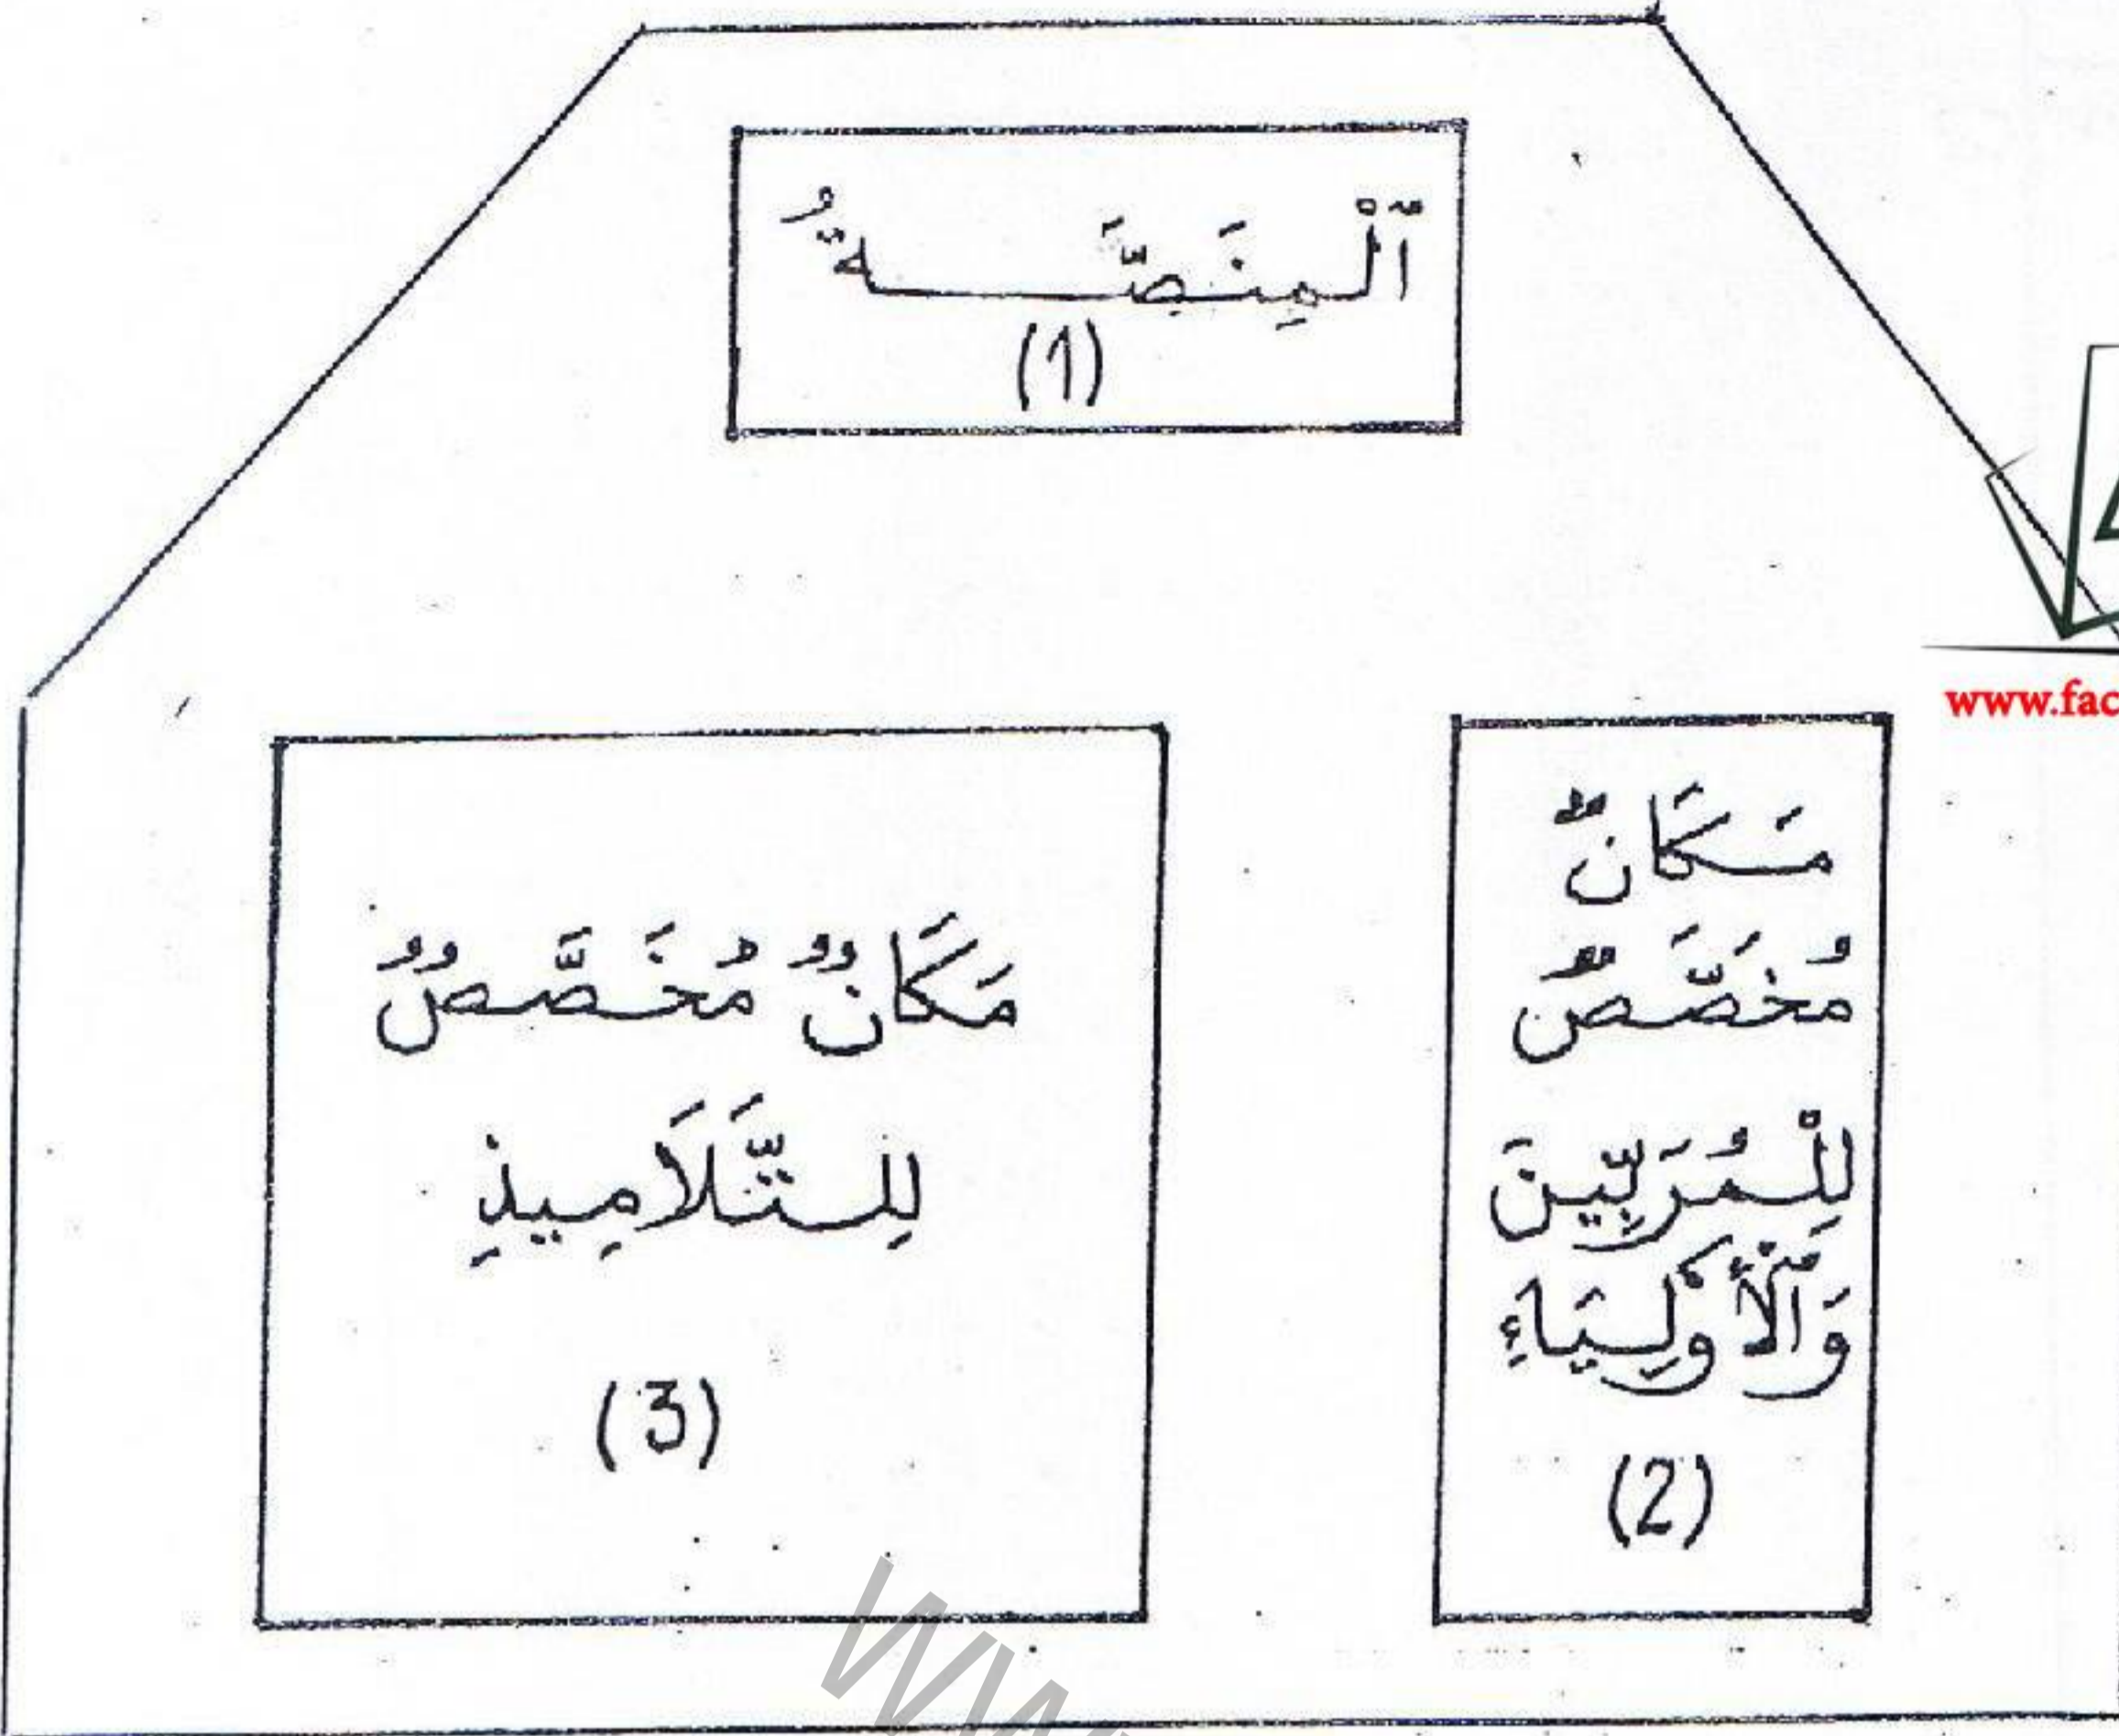 اَلْمِنَصَّةُ
(1)
www.fac
مَكَانٌ
مُخَصَّصٌ
لِلْمُرَبِّينَ
وَالْأَوْلِيَاءِ
(2)
مَكَانٌ مُخَصَّصٌ
لِلتَّلَامِيذِ
(3)